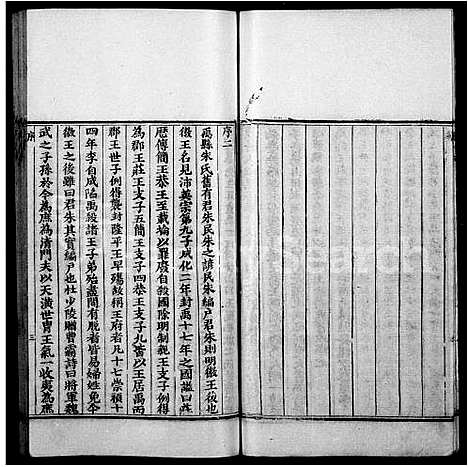 序二
禹縣朱氏舊有君朱民朱之諺民朱編户君朱則明徽王後也
徽王名見沛英宗第九子成化二年封禹十七年之國諡曰莊
歷傳簡王恭王至載埨以罪廢自殺國除明制親王支子例得
為郡王莊王支子五簡王支子四恭王支子九皆以王居禹而
郡王世子例得襲封隆平王早殤故稱王府者凡十七崇禎十
四年李自成陷禹殺諸王子弟殆盡間有脫者皆易婦姓免今
徽王之後雖曰君朱其實編户也杜少陵贈曹霸詩曰將軍魏
武之子孫於今為庶為清門夫以天潢世胄王氣一收奠為庶
序
三